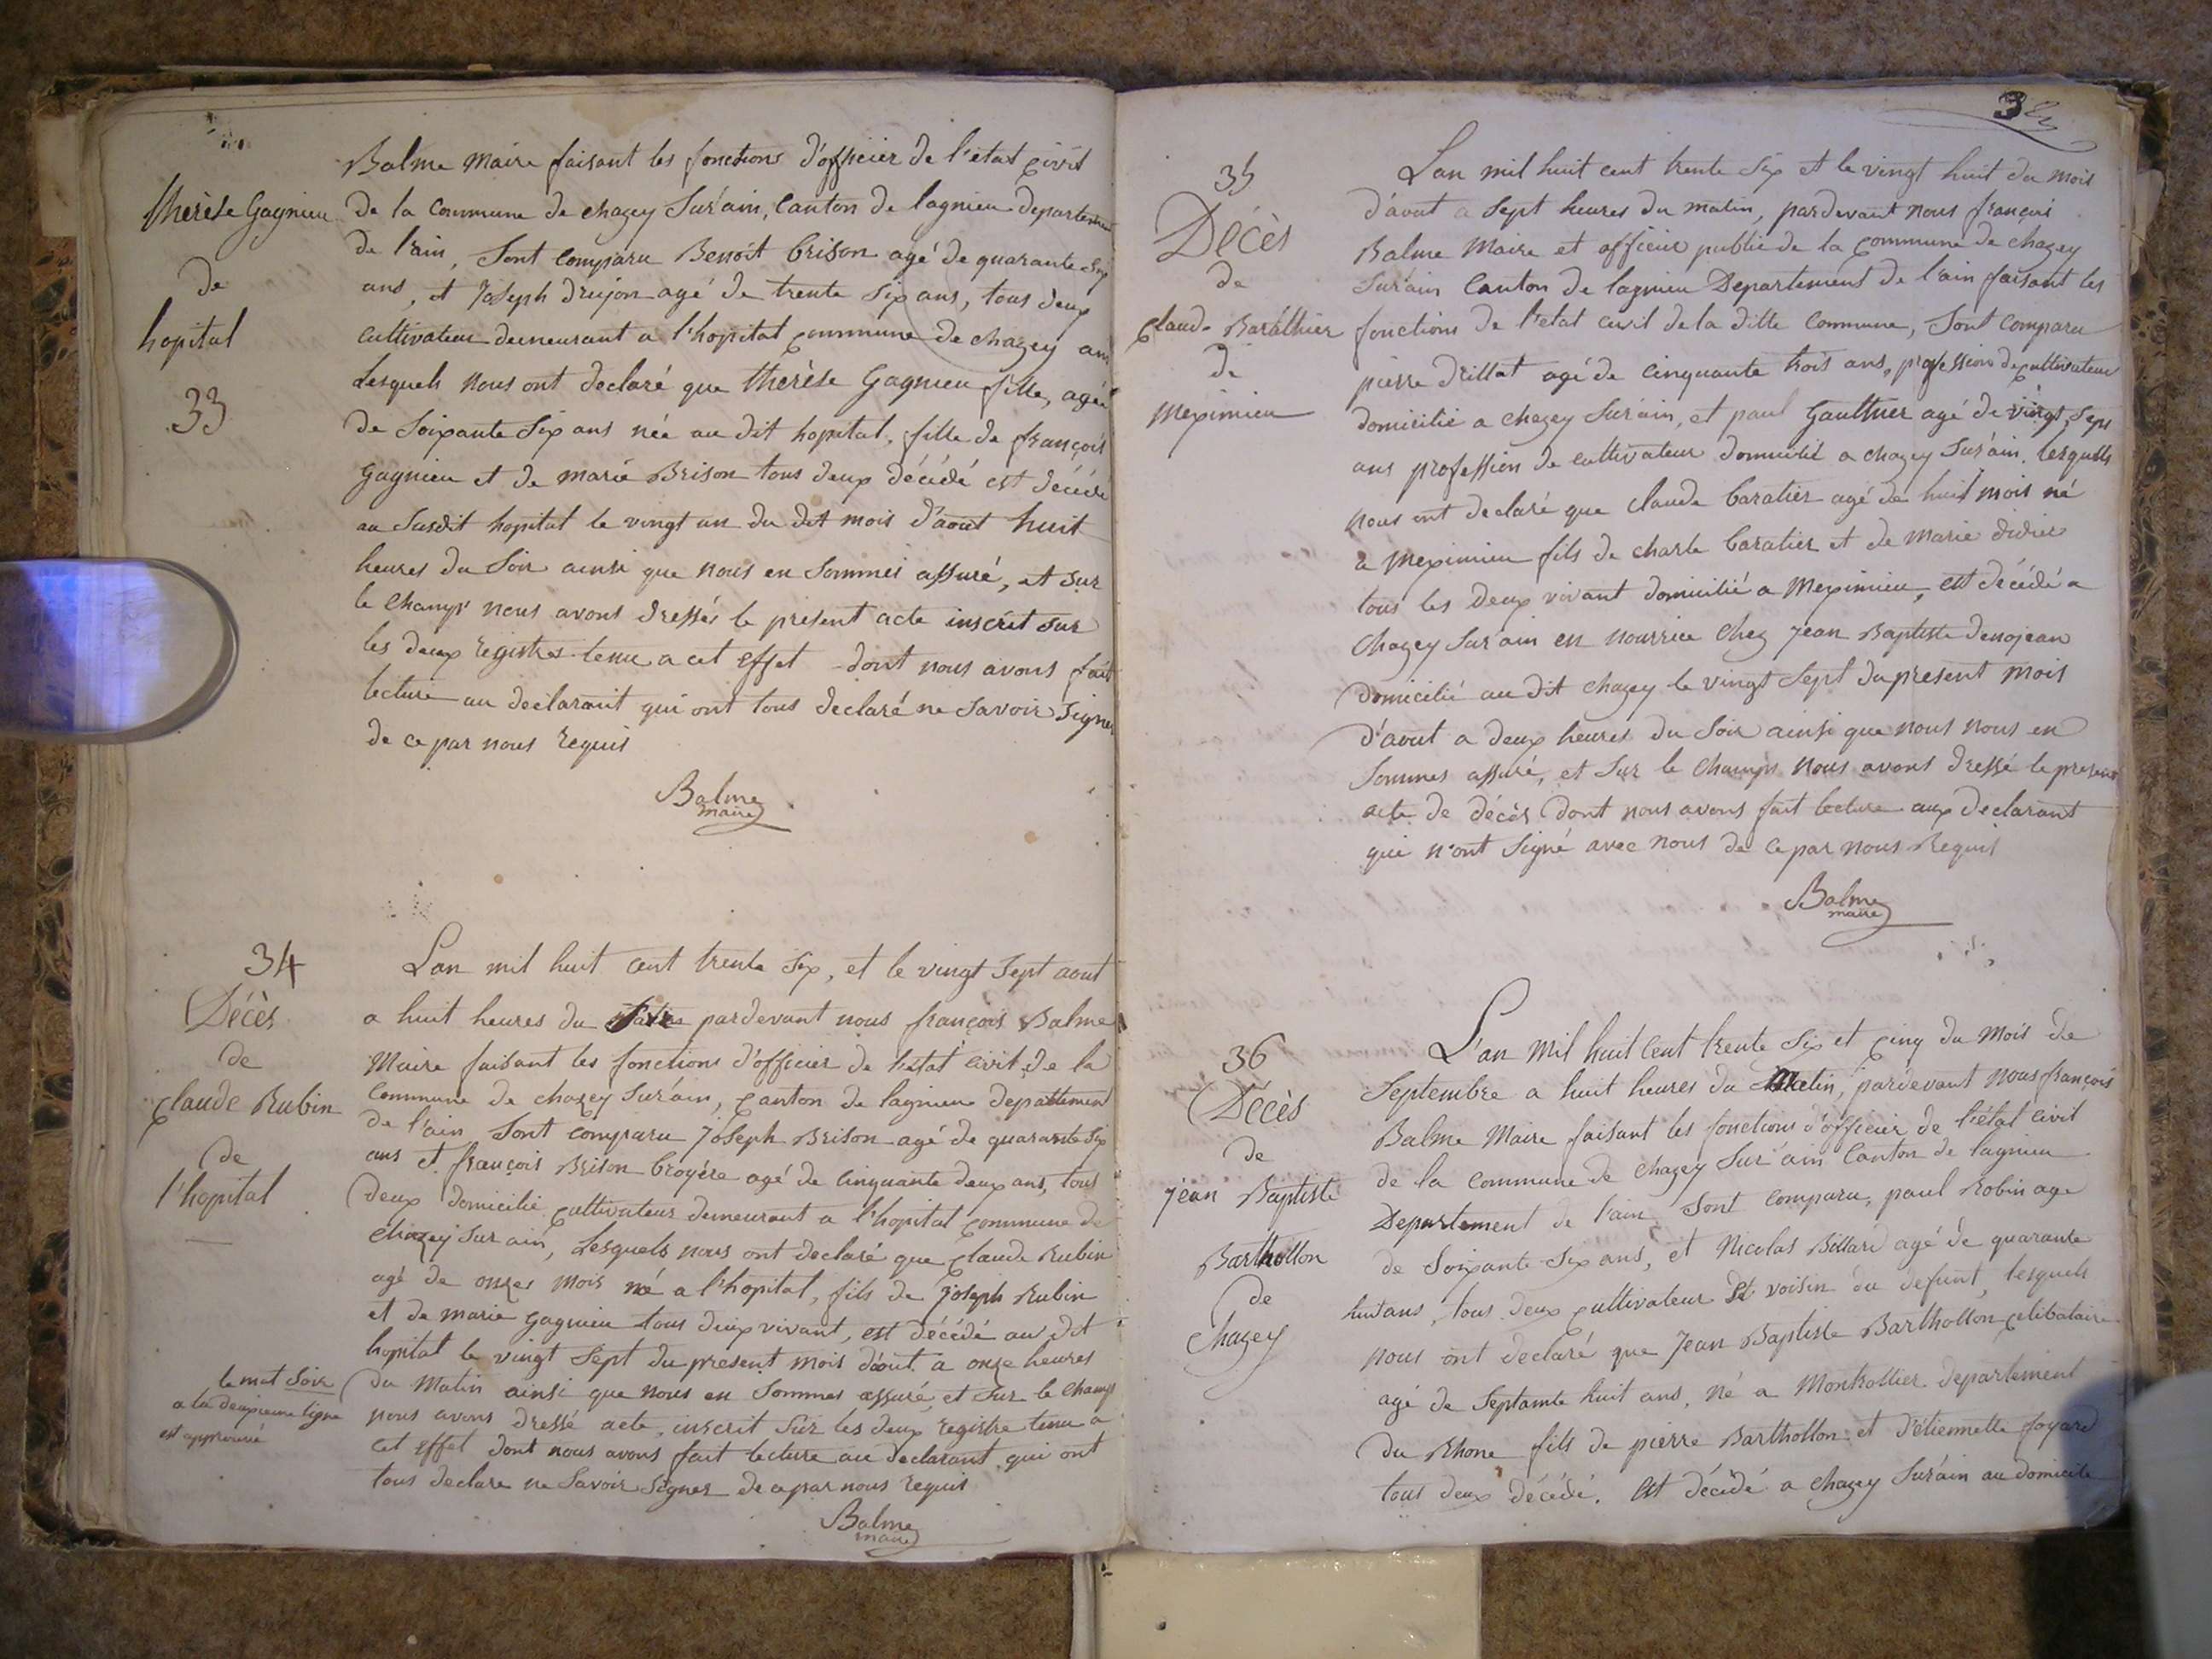 Balme Maire faisant les fonctions d'officier de l'état civil
thérèse Gagnieu
de
hopital
33
de la Commune de chazey Sur'ain, Canton de lagnieu departement
de l'ain, Sont comparu Benoît brison agé de quarante Six
ans, et Joseph drujon agé de trente Six ans, tous deux
cultivateur demeurant a l'hopital commune de chazey
Lesquels nous ont declaré que therèse Gagnieu fille, agée
de Soixante Six ans née au dit hopital, fille de françois
Gagnieu et de marie Brison tous deux décédé est décédé
au Susdit hopital le vingt un du dit mois d'aout huit
heures du Soir ainsi que nous en Sommes assuré, et sur
le Champs nous avons dressés le présent acte inscrit sur
les deux registres tenu a cet effet dont nous avons fait
lecture au declarant qui ont tous declaré ne savoir Signer
de ce par nous requis
Balme
maire
34
Décès
de
Claude Rubin
de
l'hopital
Lan mil huit cent trente Six, et le vingt Sept aout
a huit heures du Soir pardevant nous françois Balme
Maire faisant les fonctions d'officier de l'état civil de la
Commune de chazey Sur'ain, Canton de lagnieu departtement
de l'ain Sont comparu Joseph Brison agé de quarante Six
ans et françois Brison broyère agé de Cinquante deux ans, tous
deux domicilié cultivateur demeurant a l'hopital Commune de
Chazey Sur ain, Lesquels nous ont declaré que Claude Rubin
agé de onzes mois né a l'hopital, fils de Joseph Rubin
et de marie Gagnieu tous deux vivant, est décédé au dit
hopital le vingt Sept du present mois d'aout a onze heures
du Matin ainsi que nous en Sommes assuré, et Sur le Champs
nous avons dressé acte, inscrit Sur les deux registre tenu a
cet effet dont nous avons fait lecture au declarant qui ont
tous declare ne Savoir Signer de ce par nous requis
le mot Soir
a la deuxieme ligne
est approuvé
Balme
maire
35
Décès
de
Claude Barathier
de
Meximieu
Lan mil huit cent trente Six et le vingt huit du mois
d'aout a Sept heures du matin, pardevant nous françois
Balme Maire et officier public de la Commune de chazey
Sur'ain Canton de lagnieu Departement de l'ain faisant les
fonctions de l'etat civil de la ditte Commune, Sont comparu
pierre Drillat agé de Cinquante trois ans, profession de cultivateur
domicilié a chazey Sur'ain, et paul Gaulthier agé de vingt Sept
ans profession de cultivateur domicilié a chazey Sur'ain. lesquels
nous ont declaré que Claude baratier agé de huit mois né
a Meximieu fils de charle baratier et de Marie didier
tous les Deux vivant domicilié a Meximieu, est décédé a
Chazey Sur ain en nourrice chez Jean Baptiste denojean
domicilié au dit Chazey le vingt Sept du present mois
d'aout a deux heures du Soir ainsi que nous nous en
Sommes assuré, et Sur le Champs nous avons dressé le present
acte de décès dont nous avons fait lecture aux declarant
qui n'ont Signé avec nous de ce par nous Requis
Balme
maire
36
Décès
de
jean Baptiste
Barthollon
de
Chazey
L'an mil huit cent trente Six et Cinq du Mois de
Septembre a huit heures du Matin, pardevant nous françois
Balme Maire faisant les fonctions d'officier de l'état civil
de la Commune de Chazey Sur ain Canton de lagnieu
Departement de l'ain Sont comparu, paul Robin age
de Soixante Six ans, et Nicolas Billard agé de quarante
huit ans, tous deux cultivateur et voisin du defunt, lesquels
nous ont declaré que Jean Baptiste Barthollon celibataire
agé de Septante huit ans, né a Montrottier departement
du Rhone fils de pierre Barthollon et d'étiennette foyard
tous deux décédé. est décédé a Chazey Sur'ain au domicile